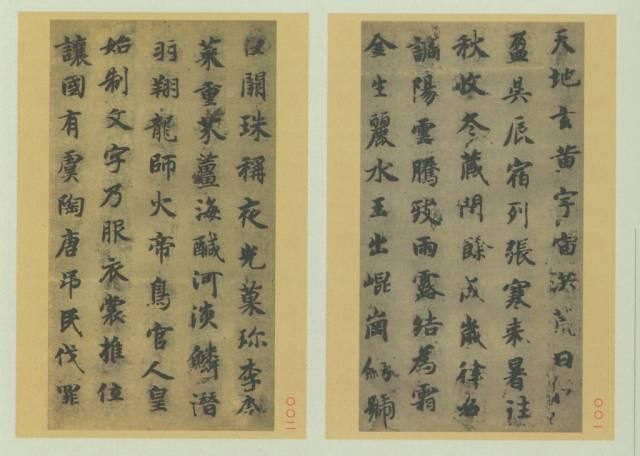 天地玄黄宇宙洪荒日月
盈昃辰宿列張寒来暑往
秋收冬蔵閏餘成歳律召
調陽雲騰致雨露結為霜
金生麗水玉出崐崗劒號
〇〇一
巨闕珠稱夜光菓珎李柰
菜重芥薑海鹹河淡鱗潜
羽翔龍師火帝鳥官人皇
始制文字乃服衣裳推位
讓國有虞陶唐吊民伐罪
〇〇二